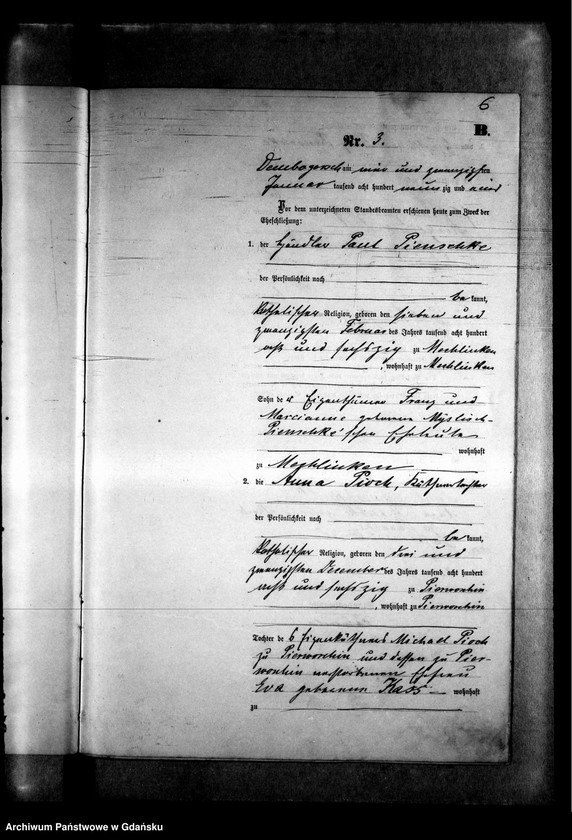 6
B.
Nr. 3.
Dembogorsch am ein und zwanzigsten
Januar tausend acht hundert neunzig und eins
Vor dem unterzeichneten Standesbeamten erschienen heute zum Zweck der
Eheschließung:
1. der Händler Paul Pienschke
der Persönlichkeit nach
bekannt,
katholischer Religion, geboren den sieben und
zwanzigsten Februar des Jahres tausend acht hundert
acht und sechszig zu Mechlinken
, wohnhaft zu Mechlinken
Sohn der Eigenthümer Franz und
Marcianne geborene
Pienschke'schen Eheleute
wohnhaft
zu Mechlinken
2. die Anna Pioch, Käthnertochter
der Persönlichkeit nach
bekannt,
katholischer Religion, geboren den drei und
zwanzigsten December des Jahres tausend acht hundert
acht und sechszig zu Pierwoschin
, wohnhaft zu Pierwoschin
Tochter des Eigenkäthners Michael Pioch
zu Pierwoschin und dessen zu Pier-
woschin verstorbenen Ehefrau
Eva geborenen Kass wohnhaft
zu
Archiwum Państwowe w Gdańsku